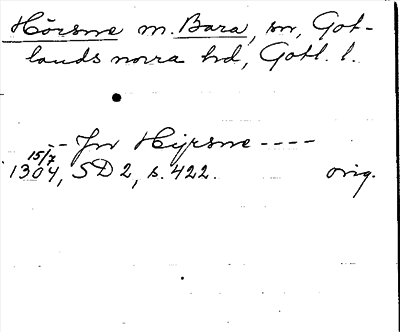 Hörsne m. Bara, sn, Got-
lands norra hd, Gotl. l.
-- Jn Hyrsne ----
15/7 1304, SD 2, s. 422. orig.